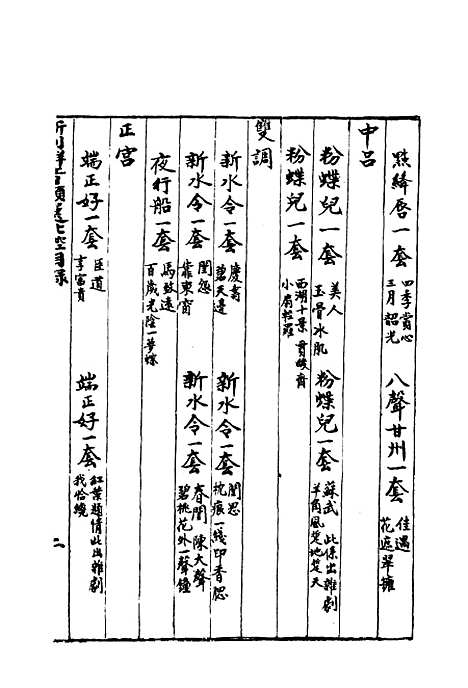 點絳唇一套 四季賞心 三月韶光 八聲甘州一套 佳遇 花遮翠擁
中吕
粉蝶兒一套 美人 玉骨冰肌 粉蝶兒一套 蘇武 此係出雜劇 羊角風楚地楚天
粉蝶兒一套 西湖十景 貫酸齋 小扇輕羅
雙調
新水令一套 慶壽 碧天邊 新水令一套 閨思 枕痕一綫印香腮
新水令一套 閨怨 靠東窗 新水令一套 春閨 陳大聲 碧桃花外一聲鐘
夜行船一套 馬致遠 百歲光陰一夢蝶
正宮
端正好一套 臣道 享富貴 端正好一套 紅葉題情此出雜劇 我恰纔
目錄 二